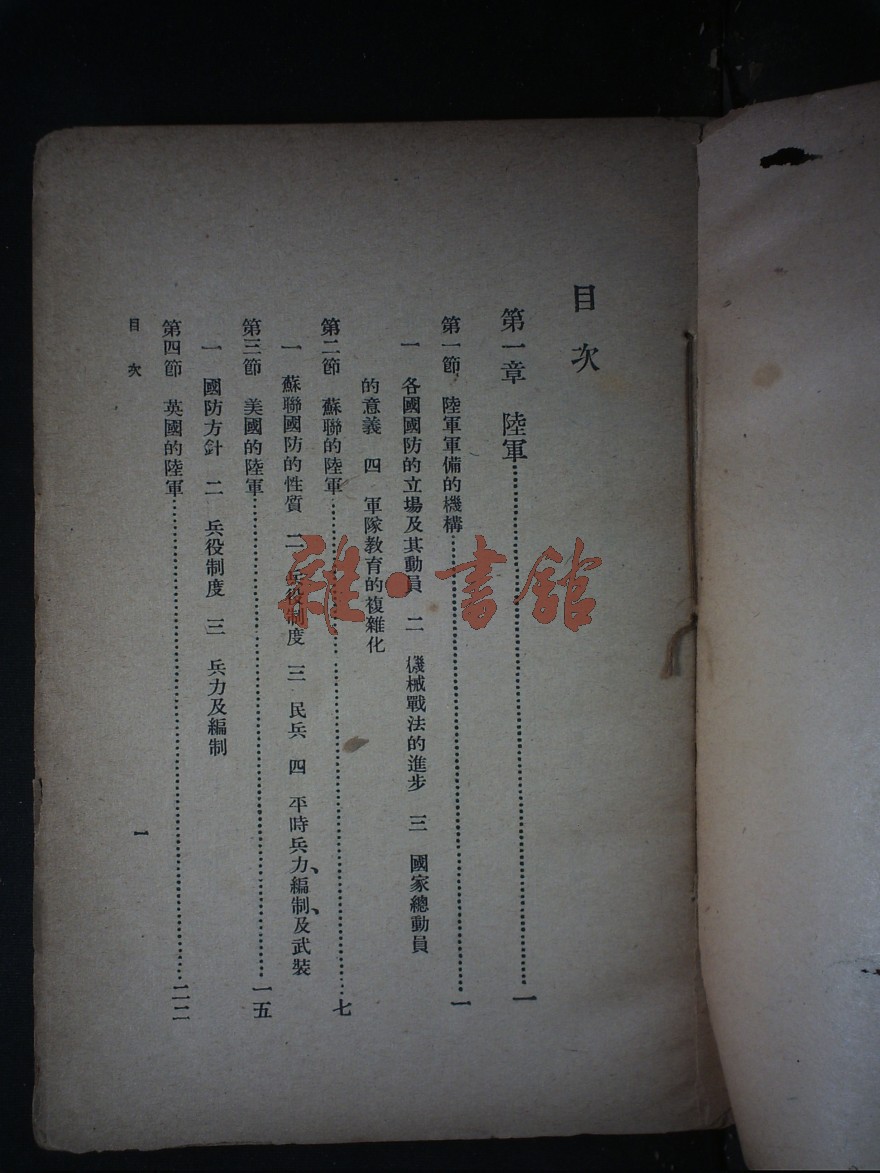 目次
第一章　陸軍……一
第一節　陸軍軍備的機構……一
一　各國國防的立場及其動員　二　機械戰法的進步　三　國家總動員
的意義　四　軍隊教育的複雜化
第二節　蘇聯的陸軍……七
一　蘇聯國防的性質　二　兵役制度　三　民兵　四　平時兵力、編制、及武裝
第三節　美國的陸軍……一五
一　國防方針　二　兵役制度　三　兵力及編制
第四節　英國的陸軍……二二
目次
一
雜·書館